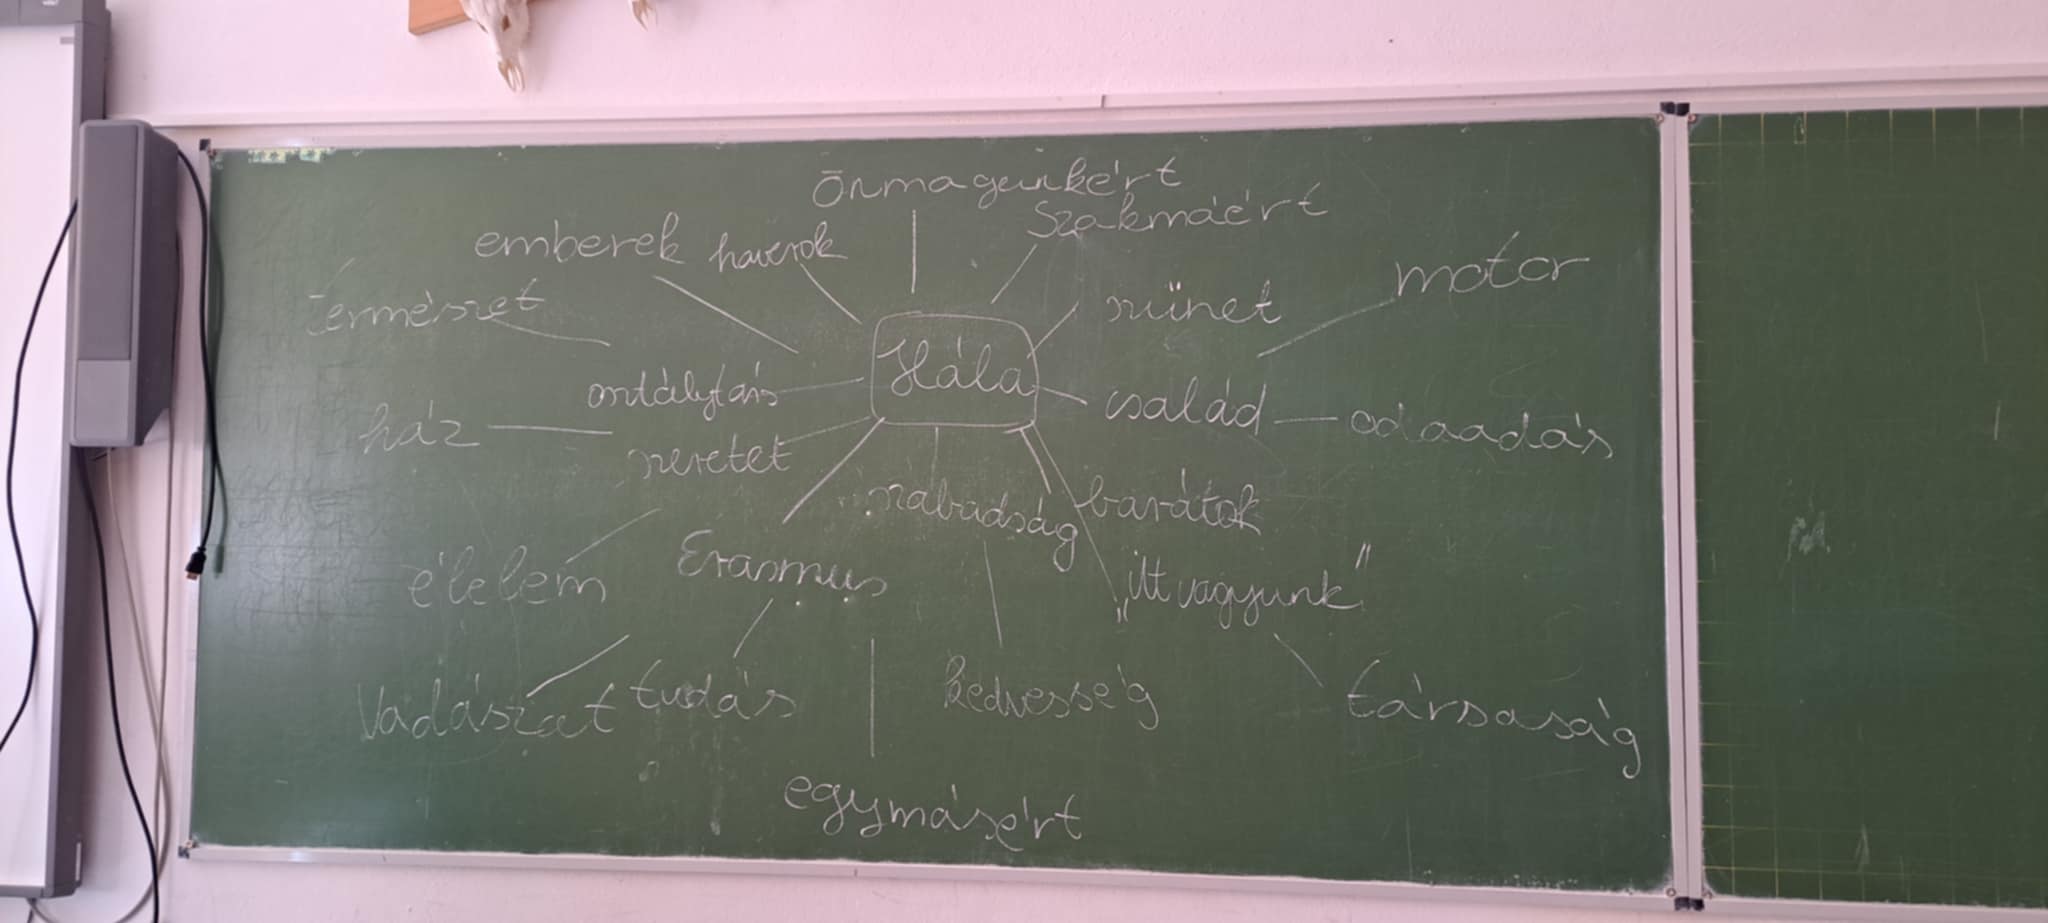 Önmagunkért
Szakmáért
emberek haverok
motor
természet
szünet
Hála
osztálytárs
család odaadás
ház
szeretet
szabadság barátok
Erasmus
élelem
„itt vagyunk"
Vadászat tudás kedvesség társaság
egymásért